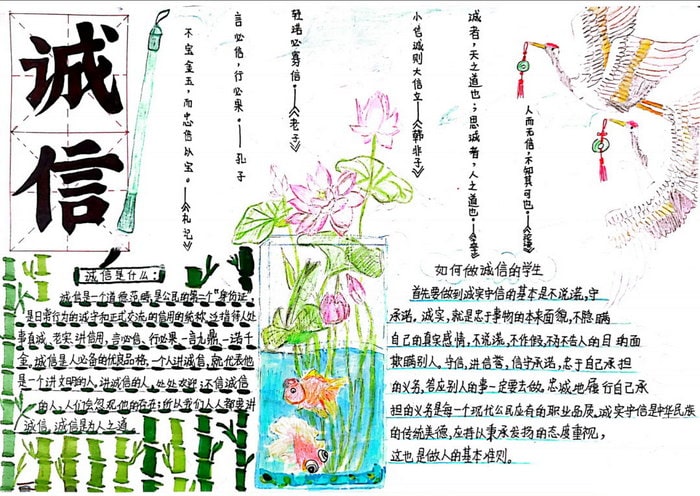 诚
信
不宝金玉，而忠信以宝。——《礼记》
言必信，行必果。——孔子
轻诺必寡信。——《老子》
小信诚则大信立——《韩非子》
诚者，天之道也；思诚者，人之道也。——《孟子》
人而无信，不知其可也。——《论语》
诚信是什么：
诚信是一个道德范畴，是公民的第二个“身份证”，
是日常行为的诚守和正式交流的信用的统称，泛指待人处
事真诚、老实、讲信用，言必信、行必果，一言九鼎，一诺千
金，诚信是人必备的优良品格，一个人讲诚信，就代表他
是一个讲文明的人，讲诚信的人，处处欢迎；不信诚信
的人，人们会忽视他的存在；所以我们人人都要讲
诚信，诚信是为人之道。
如何做诚信的学生
首先要做到诚实守信的基本是不说谎，守
承诺。诚实，就是忠于事物的本来面貌，不隐瞒
自己的真实感情，不说谎，不作假，不为不告人的目的而
欺瞒别人。守信，讲信誉，信守承诺，忠于自己承担
的义务，答应别人的事一定要去做。忠诚地履行自己承
担的义务是每一个现代公民应有的职业品质，诚实守信是中华民族
的传统美德，应持以秉承发扬的态度重视，
这也是做人的基本准则。